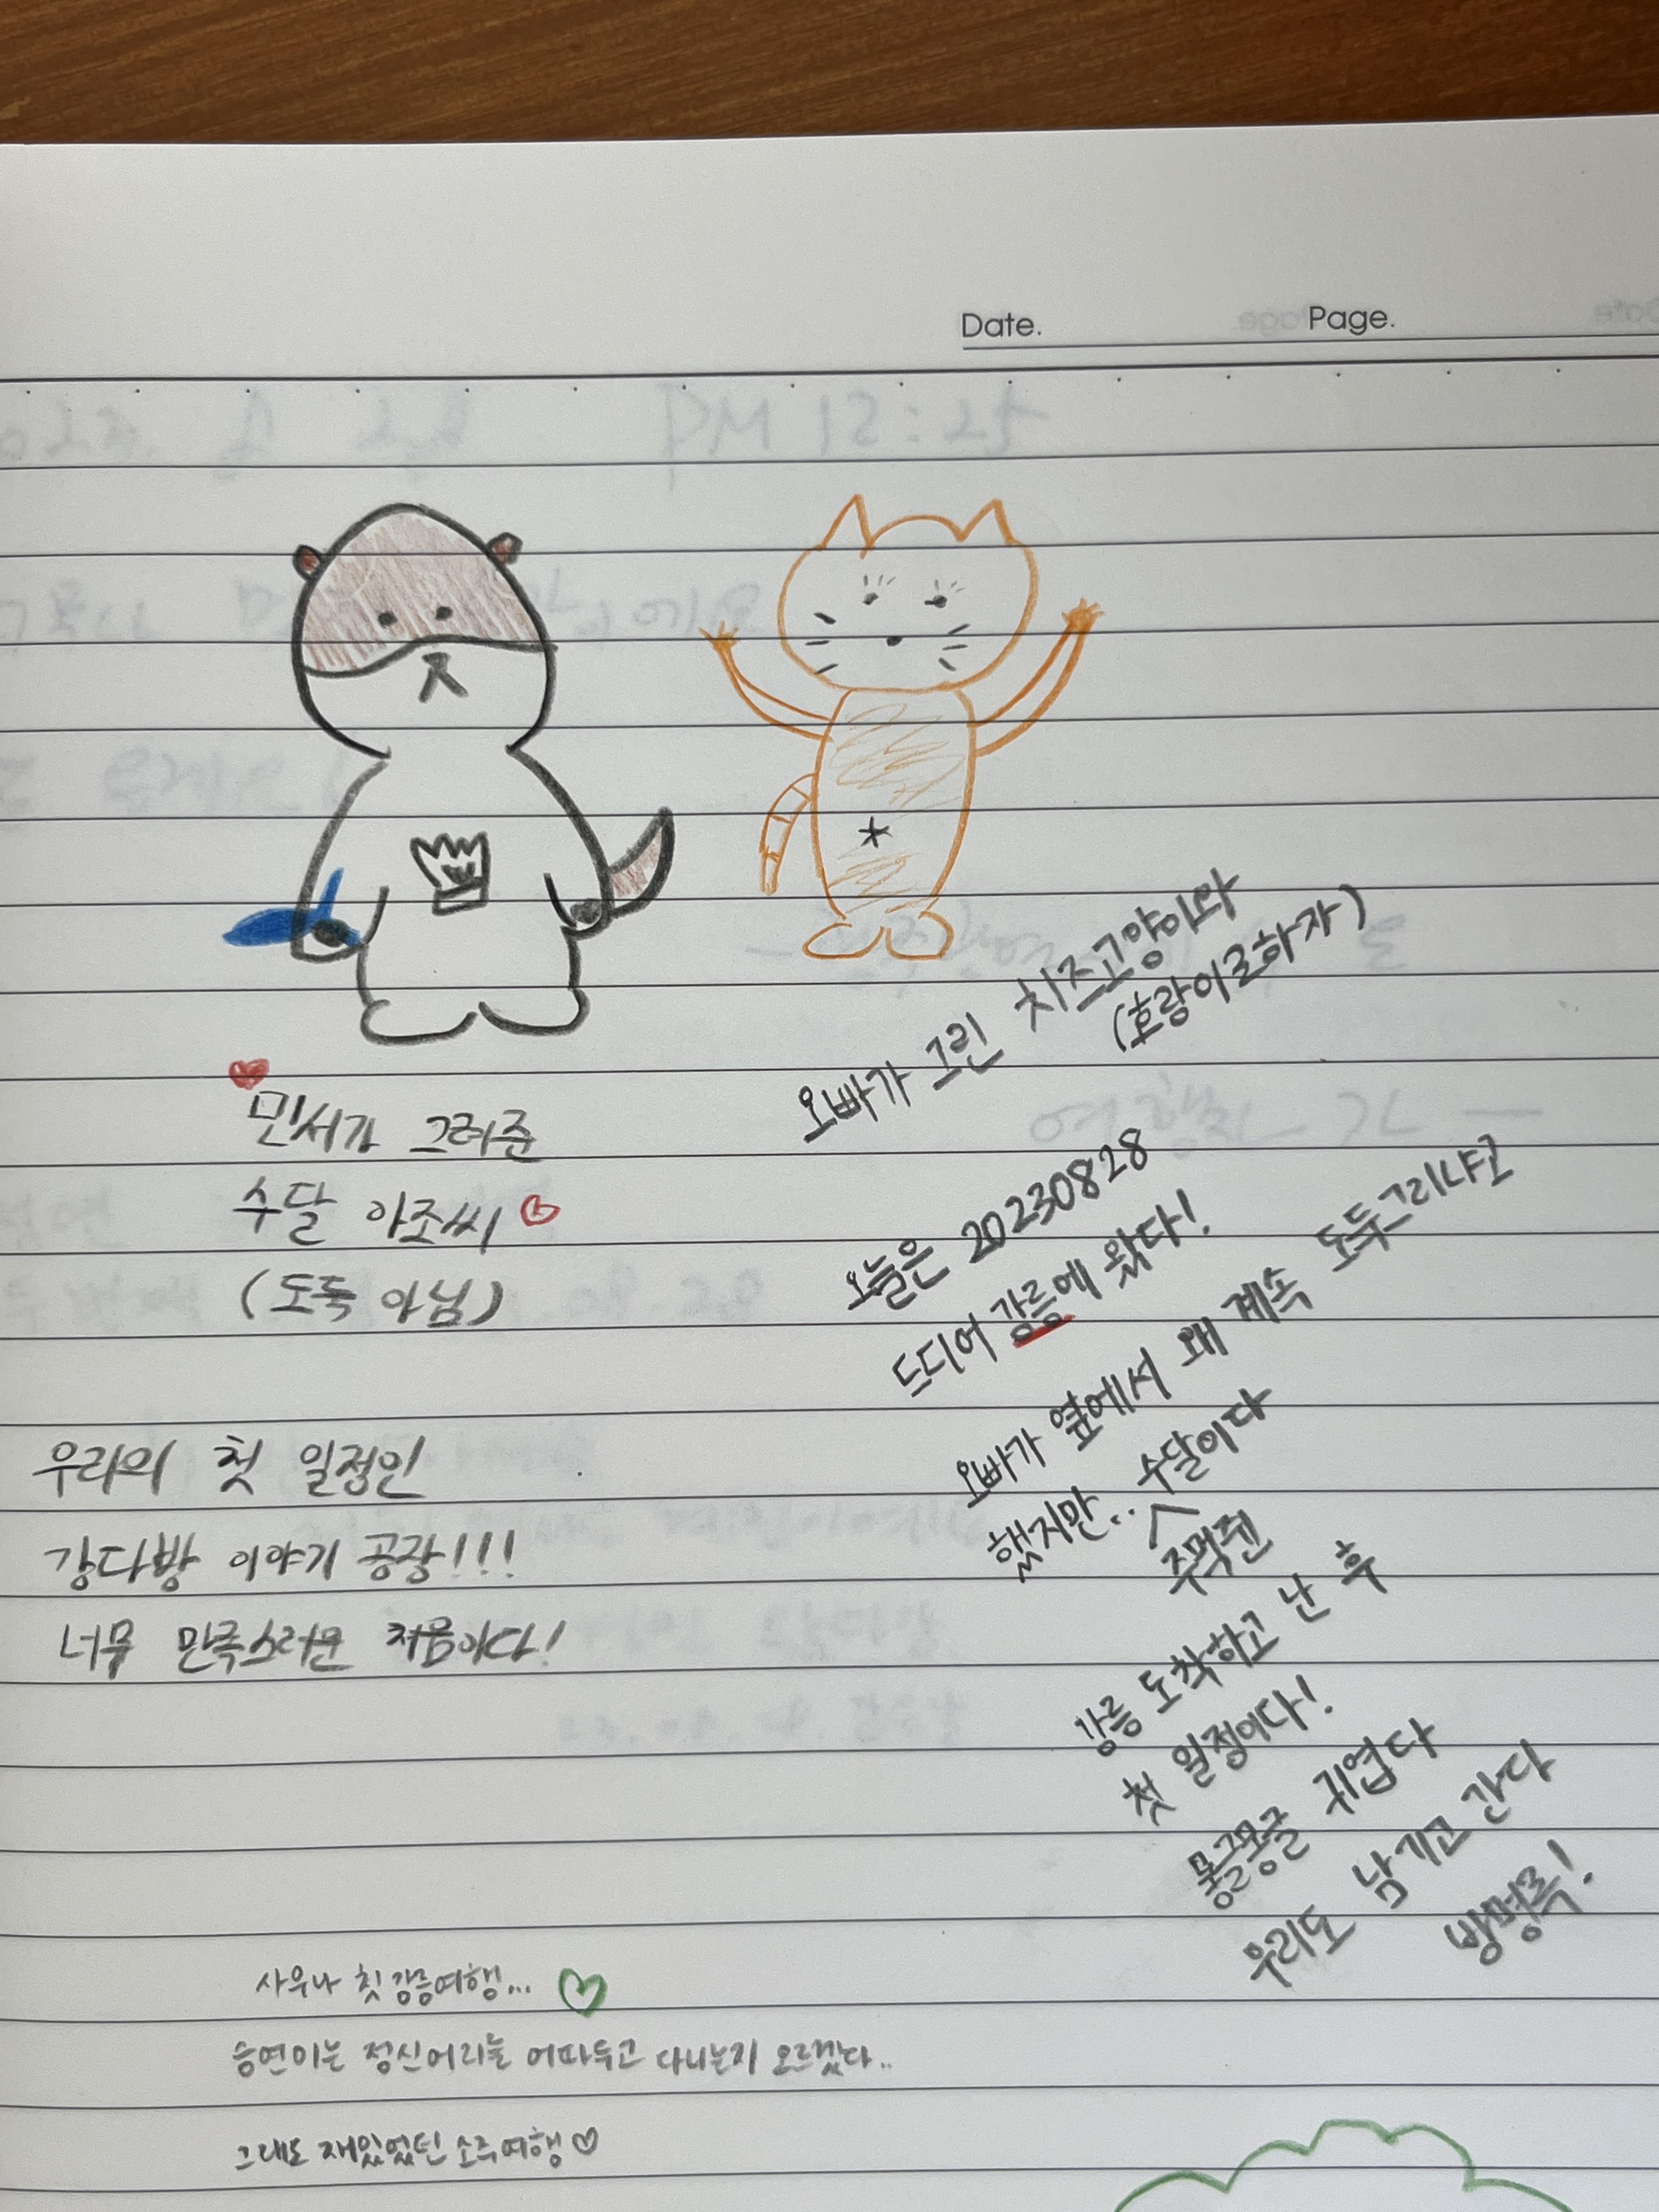 Date. Page.
민서가 그려준
수달 아조씨
(도둑 아님)
우리의 첫 일정인
강다방 이야기 공장!!!
너무 만족스러운 처음이다!
오빠가 그린 치즈고양이다
(호랑이로하자)
오늘은 20230828
드디어 강릉에 왔다!
오빠가 옆에서 왜 계속 도둑그리냐고
했지만.. 수달이다
주먹쥔
강릉 도착하고 난 후
첫 일정이다!
몽글몽글 귀엽다
우리도 남기고 간다
방명록!
사우나 첫 강릉여행...
승연이는 정신머리를 어따두고 다니는지 모르겠다..
그래도 재밌었던 소주여행♡